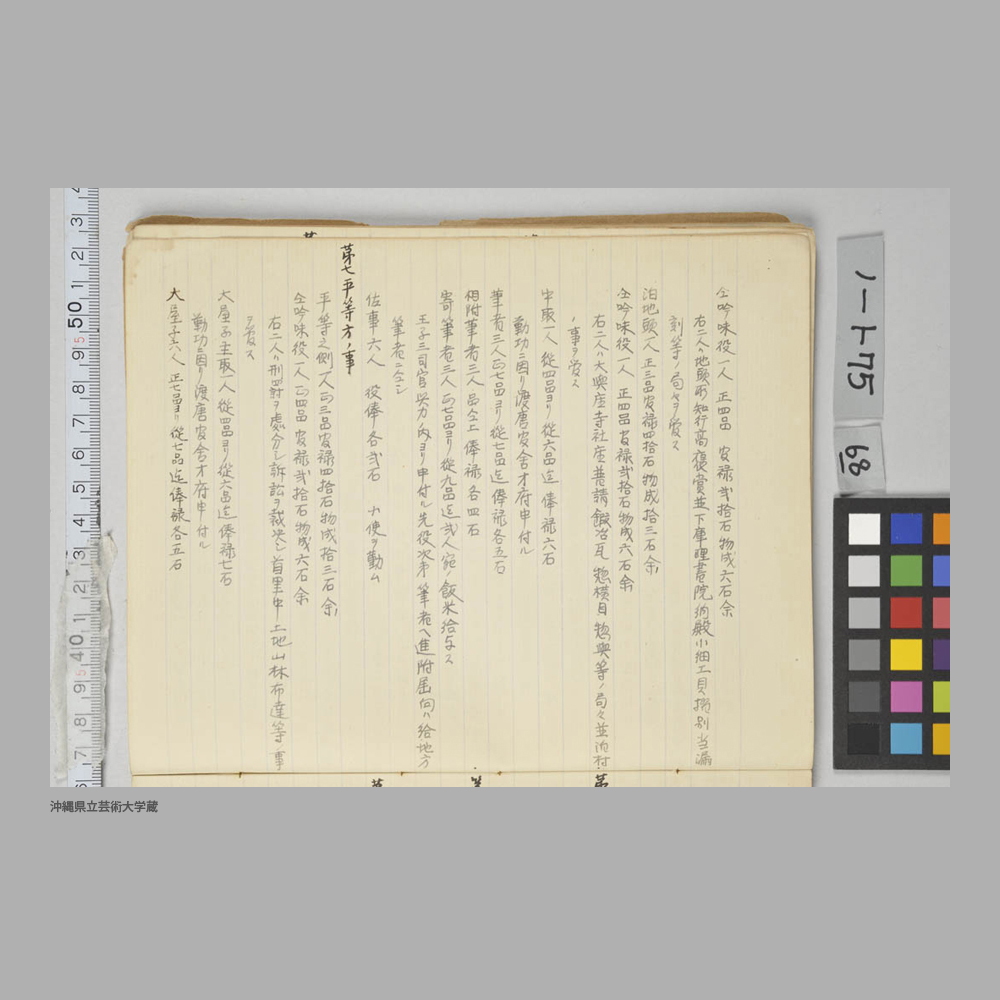 仝吟味役一人 正四品 安禄弐拾石物成六石余
右二人ハ地頭所知行高褒賞並下庫理書院納殿小細工貝摺別当漏
刻等ノ局々ヲ管ス
泊地頭一人 正三品安禄四拾石物成拾三石余
仝吟味役一人 正四品安禄弐拾石物成六石余
右二人ハ大與座寺社座普請鍛冶瓦惣横目惣與等ノ局々並泊村
ノ事ヲ管ス
中取一人 従四品ヨリ従六品迄 俸禄六石
勤功ニ因リ渡唐安舎才府申付ル
筆者三人正七品ヨリ従七品迄俸禄各五石
相附筆者二人品仝上 俸禄各四石
寄筆者三人正七品ヨリ従九品迄弐人宛ノ飯米給与ス
王子三司官與力ノ内ヨリ申付ル先役次第筆者ヘ進附届向ハ給地方
筆者ニ仝シ
佐事六人 役俸各弐石 力使ヲ勤ム
第七平等方ノ事
平等之側一人正三品安禄四拾石物成拾三石余
仝吟味役一人正四品安禄弐拾石物成六石余
右二人ハ刑罰ヲ處分シ訴訟ヲ裁決シ首里中土地山林布達等ノ事
ヲ管ス
大屋子主取一人従四品ヨリ従六品迄俸禄七石
勤功ニ因リ渡唐安舎才府申付ル
大屋子六人 正七品ヨリ従七品迄俸禄各五石
ノート75
68
沖縄県立芸術大学蔵